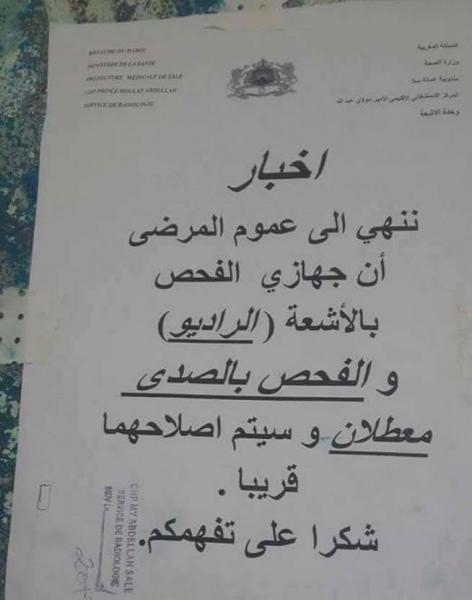 ROYAUME DU MAROC
MINISTERE DE LA SANTE
PREFECTURE MEDICALE DE SALE
CHP PRINCE MOULAY ABDELLAH
SERVICE DE RADIOLOGIE
المملكة المغربية
وزارة الصحة
مندوبية عمالة سلا
المركز الاستشفائي الإقليمي الأمير مولاي عبد الله
وحدة الأشعة
اخبار
ننهي الى عموم المرضى
أن جهازي الفحص
بالأشعة (الراديو)
و الفحص بالصدى
معطلان و سيتم اصلاحهما
قريبا .
شكرا على تفهمكم.
CHP MY ABDELLAH SALE
SERVICE DE RADIOLOGIE